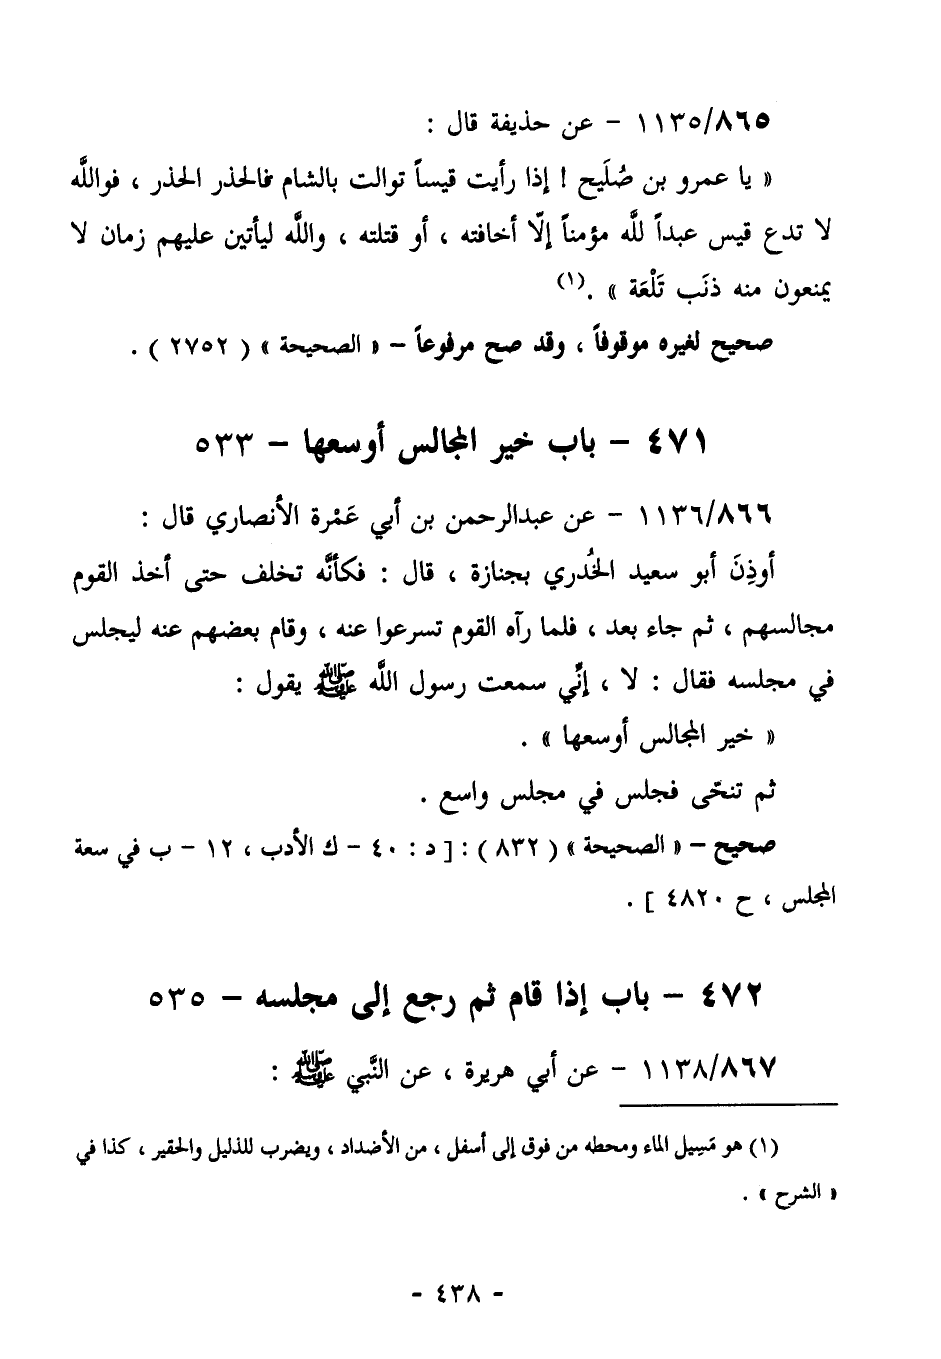 ١١٣٥/٨٦٥ - عن حذيفة قال :
« يا عمرو بن صُلَيح ! إذا رأيت قيساً توالت بالشام فالحذر الحذر ، فواللَّه
لا تدع قيس عبداً للَّه مؤمناً إلّا أخافته ، أو قتلته ، واللَّه ليأتين عليهم زمان لا
يمنعون منه ذنَب تَلْعَة » .(١)
صحيح لغيره موقوفاً ، وقد صح مرفوعاً - « الصحيحة » ( ٢٧٥٢ ) .
٤٧١ - باب خير المجالس أوسعها - ٥٣٣
١١٣٦/٨٦٦ - عن عبدالرحمن بن أبي عَمْرة الأنصاري قال :
أوذِنَ أبو سعيد الخُدري بجنازة ، قال : فكأنَّه تخلف حتى أخذ القوم
مجالسهم ، ثم جاء بعد ، فلما رآه القوم تسرعوا عنه ، وقام بعضهم عنه ليجلس
في مجلسه فقال : لا ، إنِّي سمعت رسول اللَّه ﷺ يقول :
« خير المجالس أوسعها » .
ثم تنحّى فجلس في مجلس واسع .
صحيح - « الصحيحة » ( ٨٣٢ ) : [ د : ٤٠ - ك الأدب ، ١٢ - ب في سعة
المجلس ، ح ٤٨٢٠ ] .
٤٧٢ - باب إذا قام ثم رجع إلى مجلسه - ٥٣٥
١١٣٨/٨٦٧ - عن أبي هريرة ، عن النَّبي ﷺ :
(١) هو مَسِيل الماء ومحطه من فوق إلى أسفل ، من الأضداد ، ويضرب للذليل والحقير ، كذا في
« الشرح » .
- ٤٣٨ -